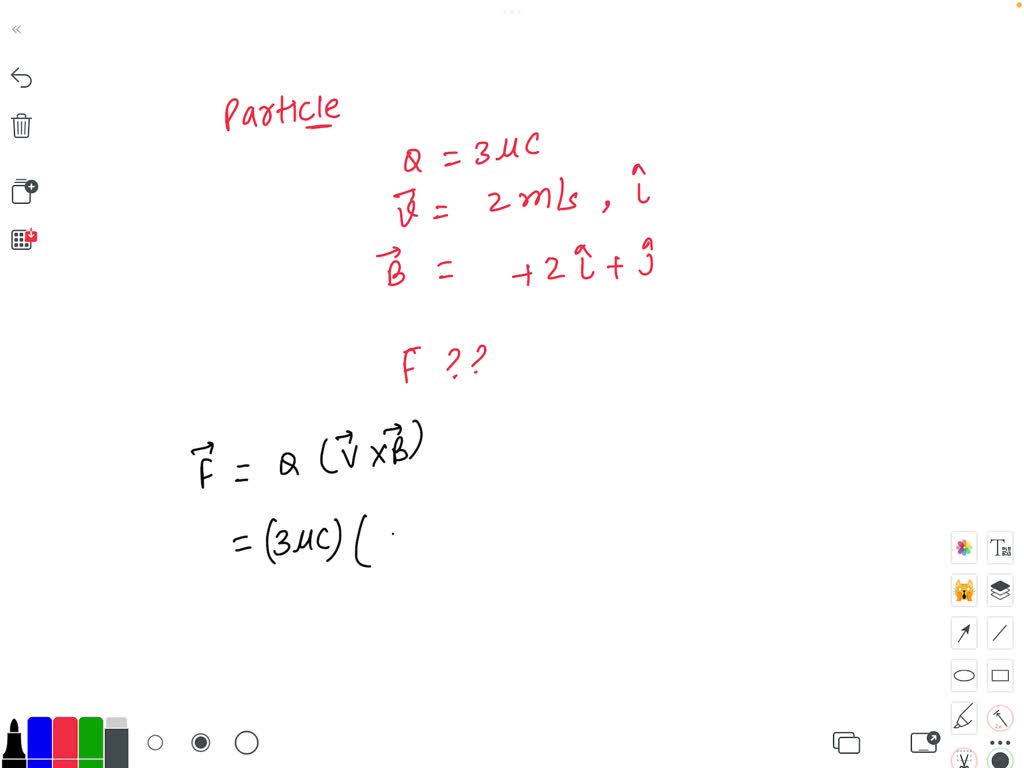 Particle
Q = 3 μC
v⃗ = 2 m/s , î
B⃗ = +2 î + ĵ
F ??
F⃗ = Q (V⃗ × B⃗)
= (3 μC) (